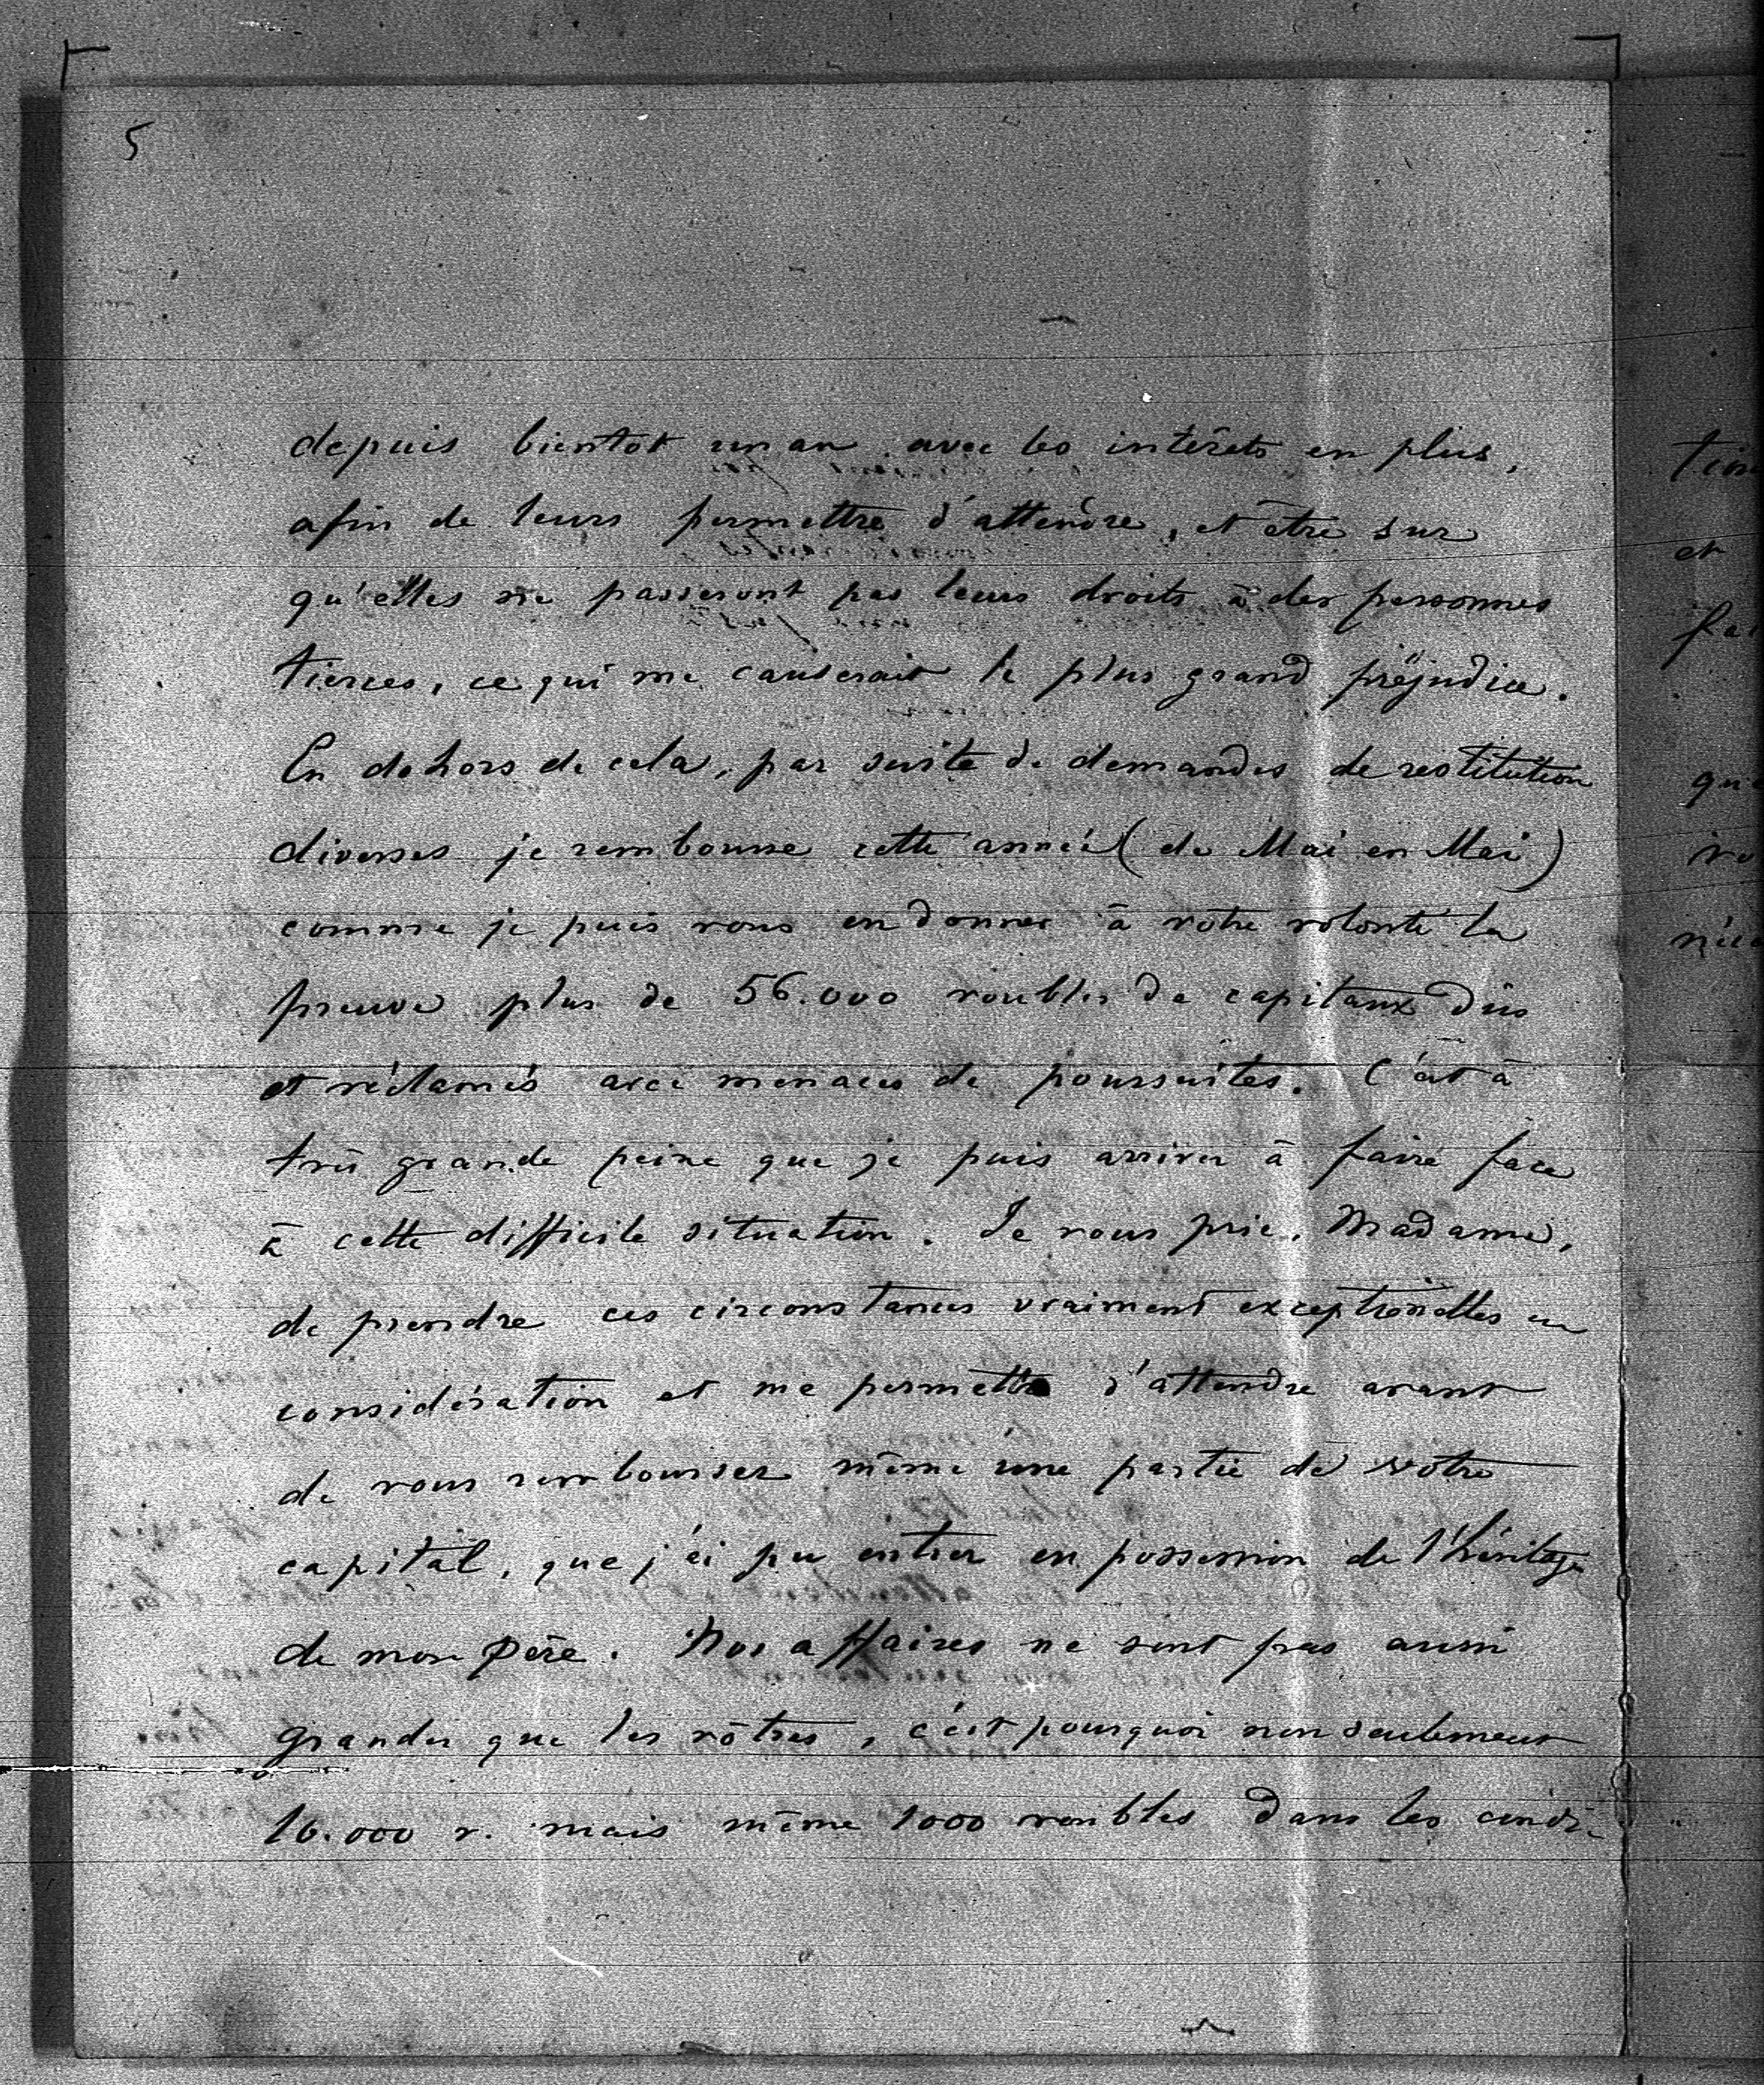 5
depuis bientot un an avec les intérêts en plus,
afin de leurs permettre d'attendre, et être sur
qu'elles ne passeront pas leurs droits à des personnes
tierces, ce qui me causerait le plus grand préjudice.
En dehors de cela, par suite de demandes de restitution
diverses je rembourse cette année (de Mai en Mai)
comme je puis vous en donner à votre volonté la
preuve plus de 56.000 roubles de capitaux dûs
et réclamés avec menaces de poursuites. C'est à
très grande peine que je puis arriver à faire face
à cette difficile situation. Je vous prie, Madame,
de prendre ces circonstances vraiment exceptionelles en
considération et me permettre d'attendre avant
de vous rembourser même une partie de votre
capital, que j'ai pu entrer en possession de l'héritage
de mon père. Nos affaires ne sont pas aussi
grandes que les vôtres, c'est pourquoi non seulement
10.000 r. mais même 1000 roubles dans les condi-